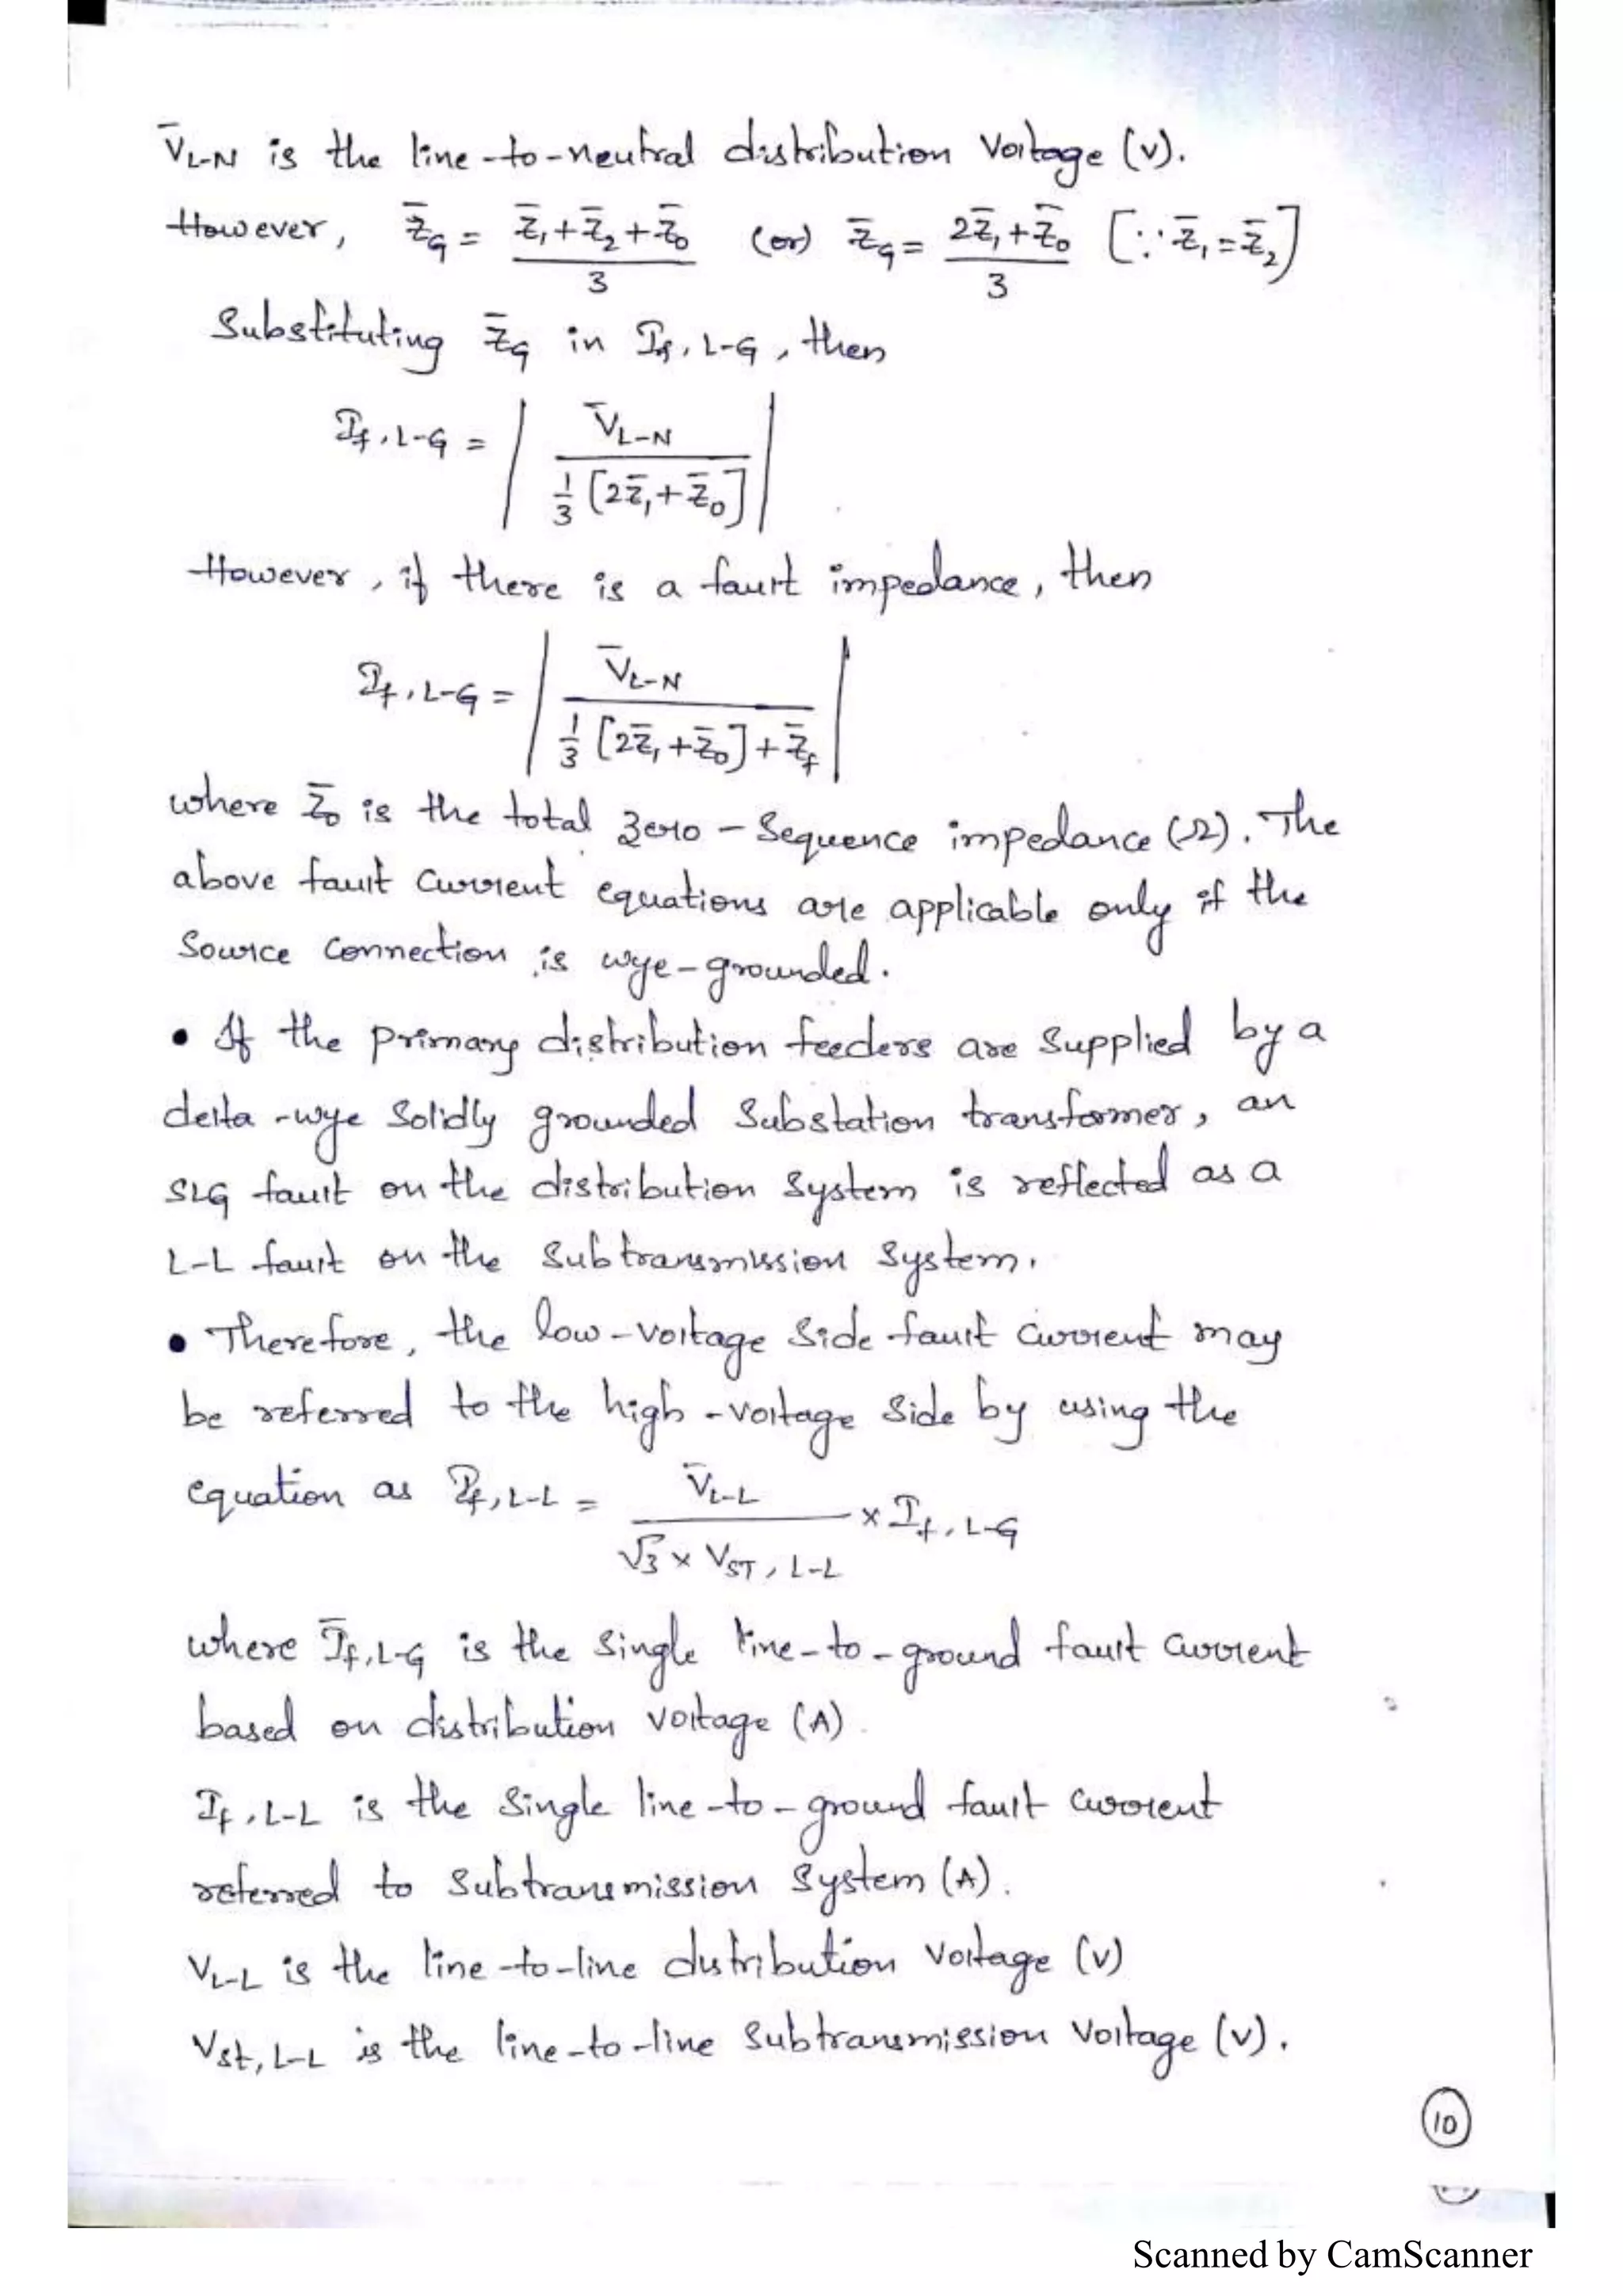 V̄L-N is the line-to-neutral distribution voltage (v).
However, Z̄G = (Z̄1+Z̄2+Z̄0)/3 (or) Z̄G = (2Z̄1+Z̄0)/3 [∵ Z̄1=Z̄2]
Substituting Z̄G in If,L-G, then
If,L-G = | V̄L-N / (1/3 [2Z̄1+Z̄0]) |
However, if there is a fault impedance, then
If,L-G = | V̄L-N / (1/3 [2Z̄1+Z̄0]+Z̄f) |
where Z̄0 is the total zero-sequence impedance (Ω). The
above fault current equations are applicable only if the
source connection is wye-grounded.
• If the primary distribution feeders are supplied by a
delta-wye solidly grounded substation transformer, an
SLG fault on the distribution system is reflected as a
L-L fault on the subtransmission system.
• Therefore, the low-voltage side fault current may
be referred to the high-voltage side by using the
equation as If,L-L = V̄L-L / (√3 × VST,L-L) × If,L-G
where Īf,L-G is the single line-to-ground fault current
based on distribution voltage (A).
If,L-L is the single line-to-ground fault current
referred to subtransmission system (A).
VL-L is the line-to-line distribution voltage (v)
Vst,L-L is the line-to-line subtransmission voltage (v).
10
Scanned by CamScanner